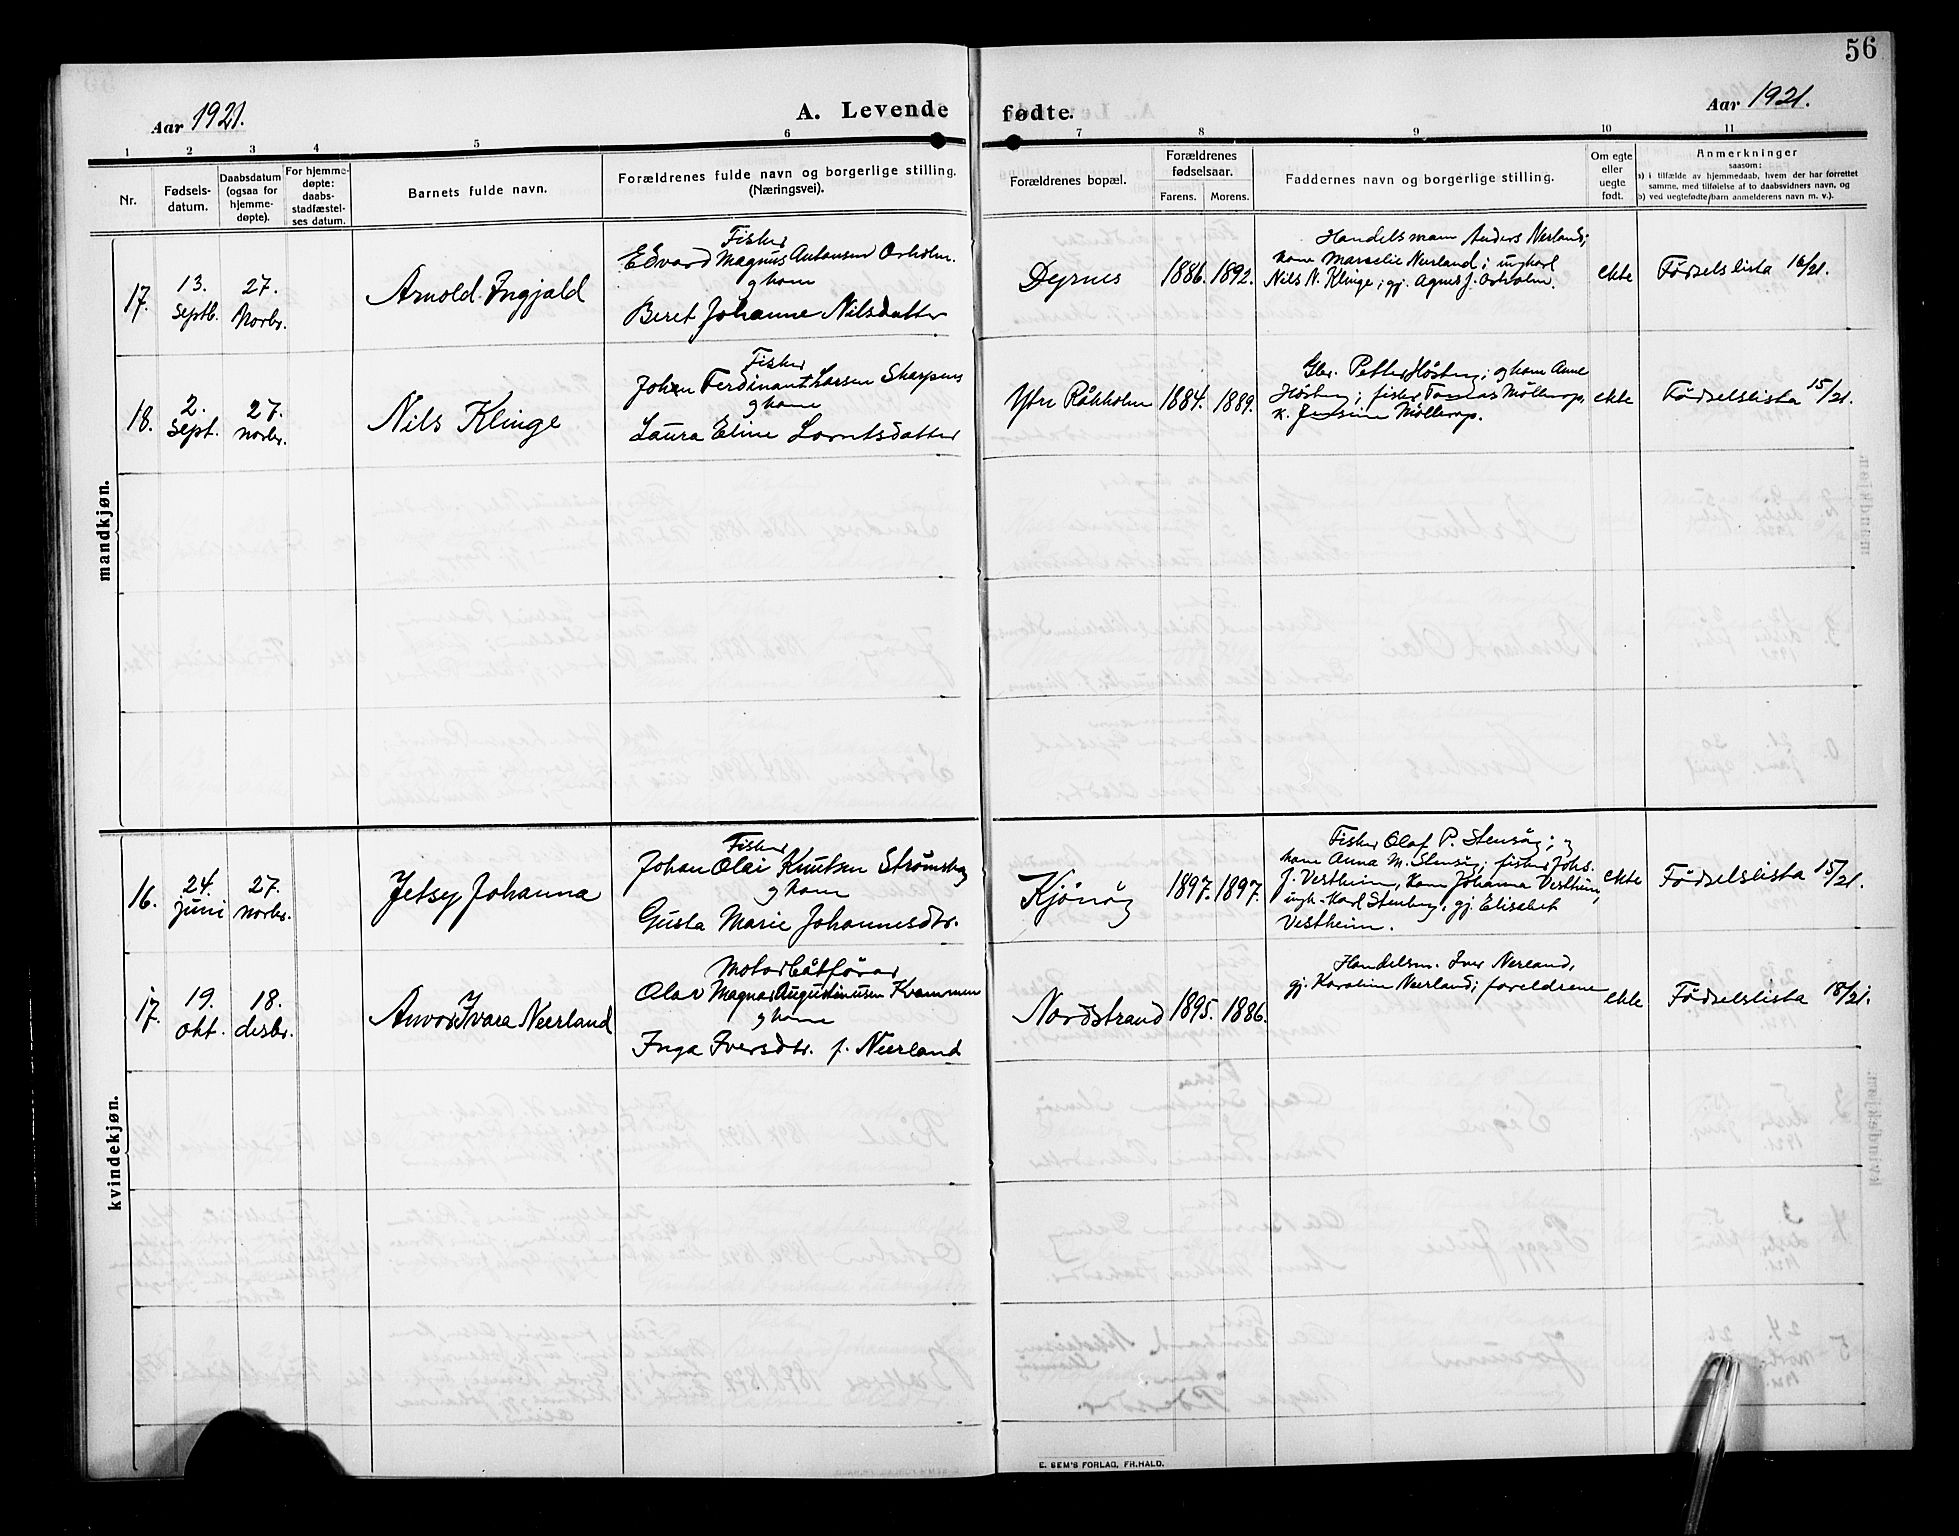 56
Aar 1921.
A. Levende fødte.
Aar 1921.
1 2 3 4 5 6 7 8 9 10 11
Nr.
Fødsels-
datum.
Daabsdatum
(ogsaa for
hjemme-
døpte).
For hjemme-
døpte:
daabs-
stadfæstel-
ses datum.
Barnets fulde navn.
Forældrenes fulde navn og borgerlige stilling.
(Næringsvei).
Forældrenes bopæl.
Forældrenes
fødselsaar.
Farens. Morens.
Faddernes navn og borgerlige stilling.
Om egte
eller
uegte
født.
Anmerkninger
saasom:
a) i tilfælde av hjemmedaab, hvem der har forrettet
samme, med tilføielse af to daabsvidners navn, og
b) ved uegtefødte barn anmelderens navn m. v.).
mandkjøn.
17.
13.
Septb.
27.
Novbr.
Arnold Ingjald
Fisker
Edvard Magnus Antonsen Orholm.
og kone
Beret Johanne Nilsdatter
Dyrnes
1886. 1892.
Handelsmann Anders Nerland;
kone Marselie Neerland; ungkarl
Nils N. Klinge; gj. Agnes J. Orholm.
ekte
Fødselslista 16/21.
18.
2.
Sept.
27.
novbr.
Nils Klinge
Fisker
Johan Ferdinant Larsen Skarpnes
og kone
Laura Eline Lorntsdatter
Ytre Råkholm
1884. 1889.
Gbr. Petter Høstøy; og kone Anne
Høstøy; fisker Tomas Møllerop,
k. Jensine Møllerop.
ekte
Fødselslista 15/21.
kvindekjøn.
16.
24.
juni
27.
novbr.
Jetsy Johanna
Fisker
Johan Olai Knutsen Strømskag
og kone
Gusta Marie Johannesdtr.
Kjønøy
1897. 1897.
Fisker Olaf P. Stensøy; og
kone Anna M. Stensøy; fisker Johs.
J. Vestheim, kone Johanna Vestheim,
ungk. Karl Stenberg, gj. Elisabet
Vestheim.
ekte
Fødselslista 15/21.
17.
19.
okt.
18.
desbr.
Anvor Ivara Neerland
Motorbåtfører
Olav Magnar Augustinusen Krammen
og kone
Inga Iversdtr. f. Neerland
Nordstrand
1895. 1886.
Handelsm. Iver Nerland,
gj. Karoline Neerland; foreldrene
ekte
Fødselslista 18/21.
E. SEM'S FORLAG, FR.HALD.